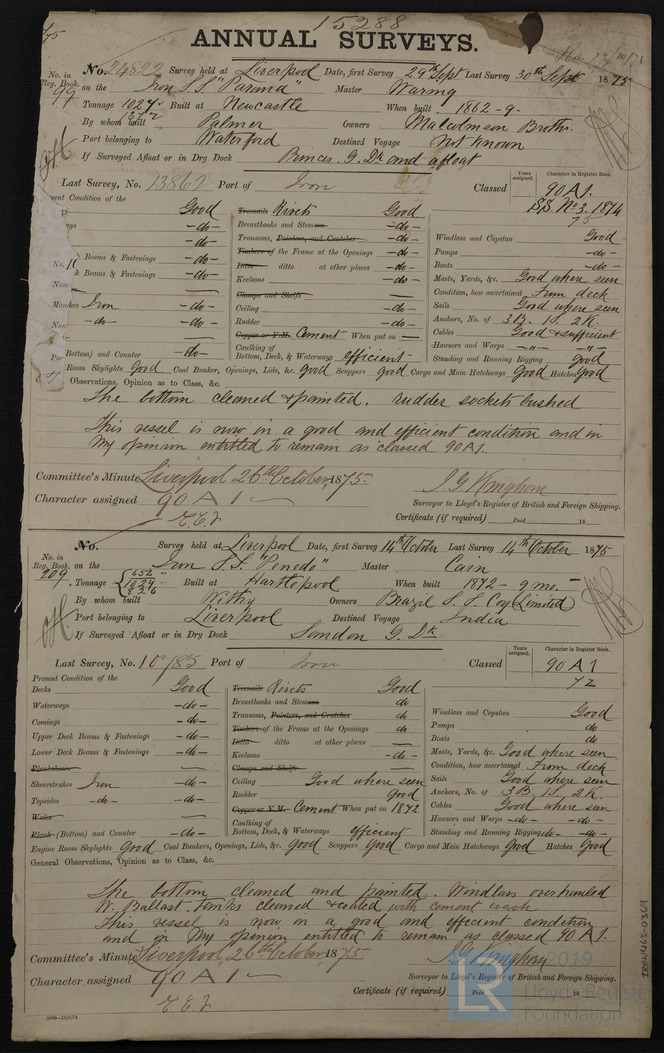 15288
ANNUAL SURVEYS.
No. 24822 Survey held at Liverpool Date, first Survey 29th Sept Last Survey 30th Sept 1875
No. in Reg. Book. 99 on the Iron S.S. "Parana" Master Waring
Tonnage 1027 Built at Newcastle When built 1862 - 9 -
By whom built Palmer Owners Malcolmson Brothrs.
Port belonging to Waterford Destined Voyage Not known
If Surveyed Afloat or in Dry Dock Princes. G. Dk and afloat
Last Survey, No. 13862 Port of Iron Classed
Years assigned. Character in Register Book.
90 A1.
SS No 3. 1874
75
Present Condition of the
Good
Treenails Rivets Good
-do-
Breasthooks and Stemson -do-
Windlass and Capstan Good
-do-
Transoms, Pointers, and Crutches -do-
Pumps -do-
Beams & Fastenings -do-
Timbers of the Frame at the Openings -do-
Boats -do-
Beams & Fastenings -do-
Ditto ditto at other places -do-
Masts, Yards, &c. Good where seen
Keelsons -do-
Condition, how ascertained From deck
Iron -do-
Clamps and Shelfs
Sails Good where seen
-do- -do-
Ceiling -do-
Anchors, No. of 3B. 1S. 2K.
Rudder -do-
Cables Good & sufficient
Copper or Y.M. Cement When put on
Hawsers and Warps -"- -"-
Bottom) and Counter -do-
Caulking of Bottom, Deck, & Waterways efficient
Standing and Running Rigging Good
Room Skylights Good Coal Bunker, Openings, Lids, &c. good Scuppers good Cargo and Main Hatchways Good Hatches Good
Observations, Opinion as to Class, &c.
The bottom cleaned & painted. rudder sockets bushed
This vessel is now in a good and efficient condition and in
my opinion entitled to remain as classed 90 A1.
Committee's Minute Liverpool 26th October 1875.
Character assigned 90 A1 -
Surveyor to Lloyd's Register of British and Foreign Shipping.
Certificate (if required) Paid 18
No. Survey held at Liverpool Date, first Survey 14th October Last Survey 14th October 1875
No. in Reg. Book. 209 on the Iron S.S. "Penedo" Master Cain
Tonnage 652 1029 826 Built at Hartlepool When built 1872 - 9 mo. -
By whom built Withy Owners Brazil S. S. Coy (Limited)
Port belonging to Liverpool Destined Voyage India
If Surveyed Afloat or in Dry Dock Sandon G. Dk
Last Survey, No. 10785 Port of Iron Classed
Years assigned. Character in Register Book.
90 A1
72
Present Condition of the
Decks Good
Treenails Rivets Good
Waterways -do-
Breasthooks and Stemson do
Windlass and Capstan Good
Comings -do-
Transoms, Pointers, and Crutches do
Pumps do
Upper Deck Beams & Fastenings -do-
Timbers of the Frame at the Openings do
Boats do
Lower Deck Beams & Fastenings -do-
Ditto ditto at other places
Masts, Yards, &c. Good where seen
Planksheers
Keelsons -do-
Condition, how ascertained From deck
Sheerstrakes Iron -do-
Clamps and Shelfs
Sails Good where seen
Topsides -do- -do-
Ceiling Good where seen
Anchors, No. of 3B. 1S. 2K.
Wales
Rudder good
Cables Good where seen
Plank (Bottom) and Counter -do-
Copper or Y.M. Cement When put on 1872
Hawsers and Warps -do- -do-
Caulking of Bottom, Deck, & Waterways efficient
Standing and Running Rigging do- -do-
Engine Room Skylights good Coal Bunkers, Openings, Lids, &c. good Scuppers good Cargo and Main Hatchways Good Hatches Good
General Observations, Opinion as to Class, &c.
The bottom cleaned and painted. Windlass overhauled
W. Ballast Tanks cleaned & coated with cement wash
This vessel is now in a good and efficient condition
and in my opinion entitled to remain as classed 90 A1.
Committee's Minute Liverpool, 26th October 1875
Character assigned 90 A1 -
Surveyor to Lloyd's Register of British and Foreign Shipping.
Certificate (if required) Paid 18
IRON463-0369
© 2019
LR
Lloyd's Register
Foundation